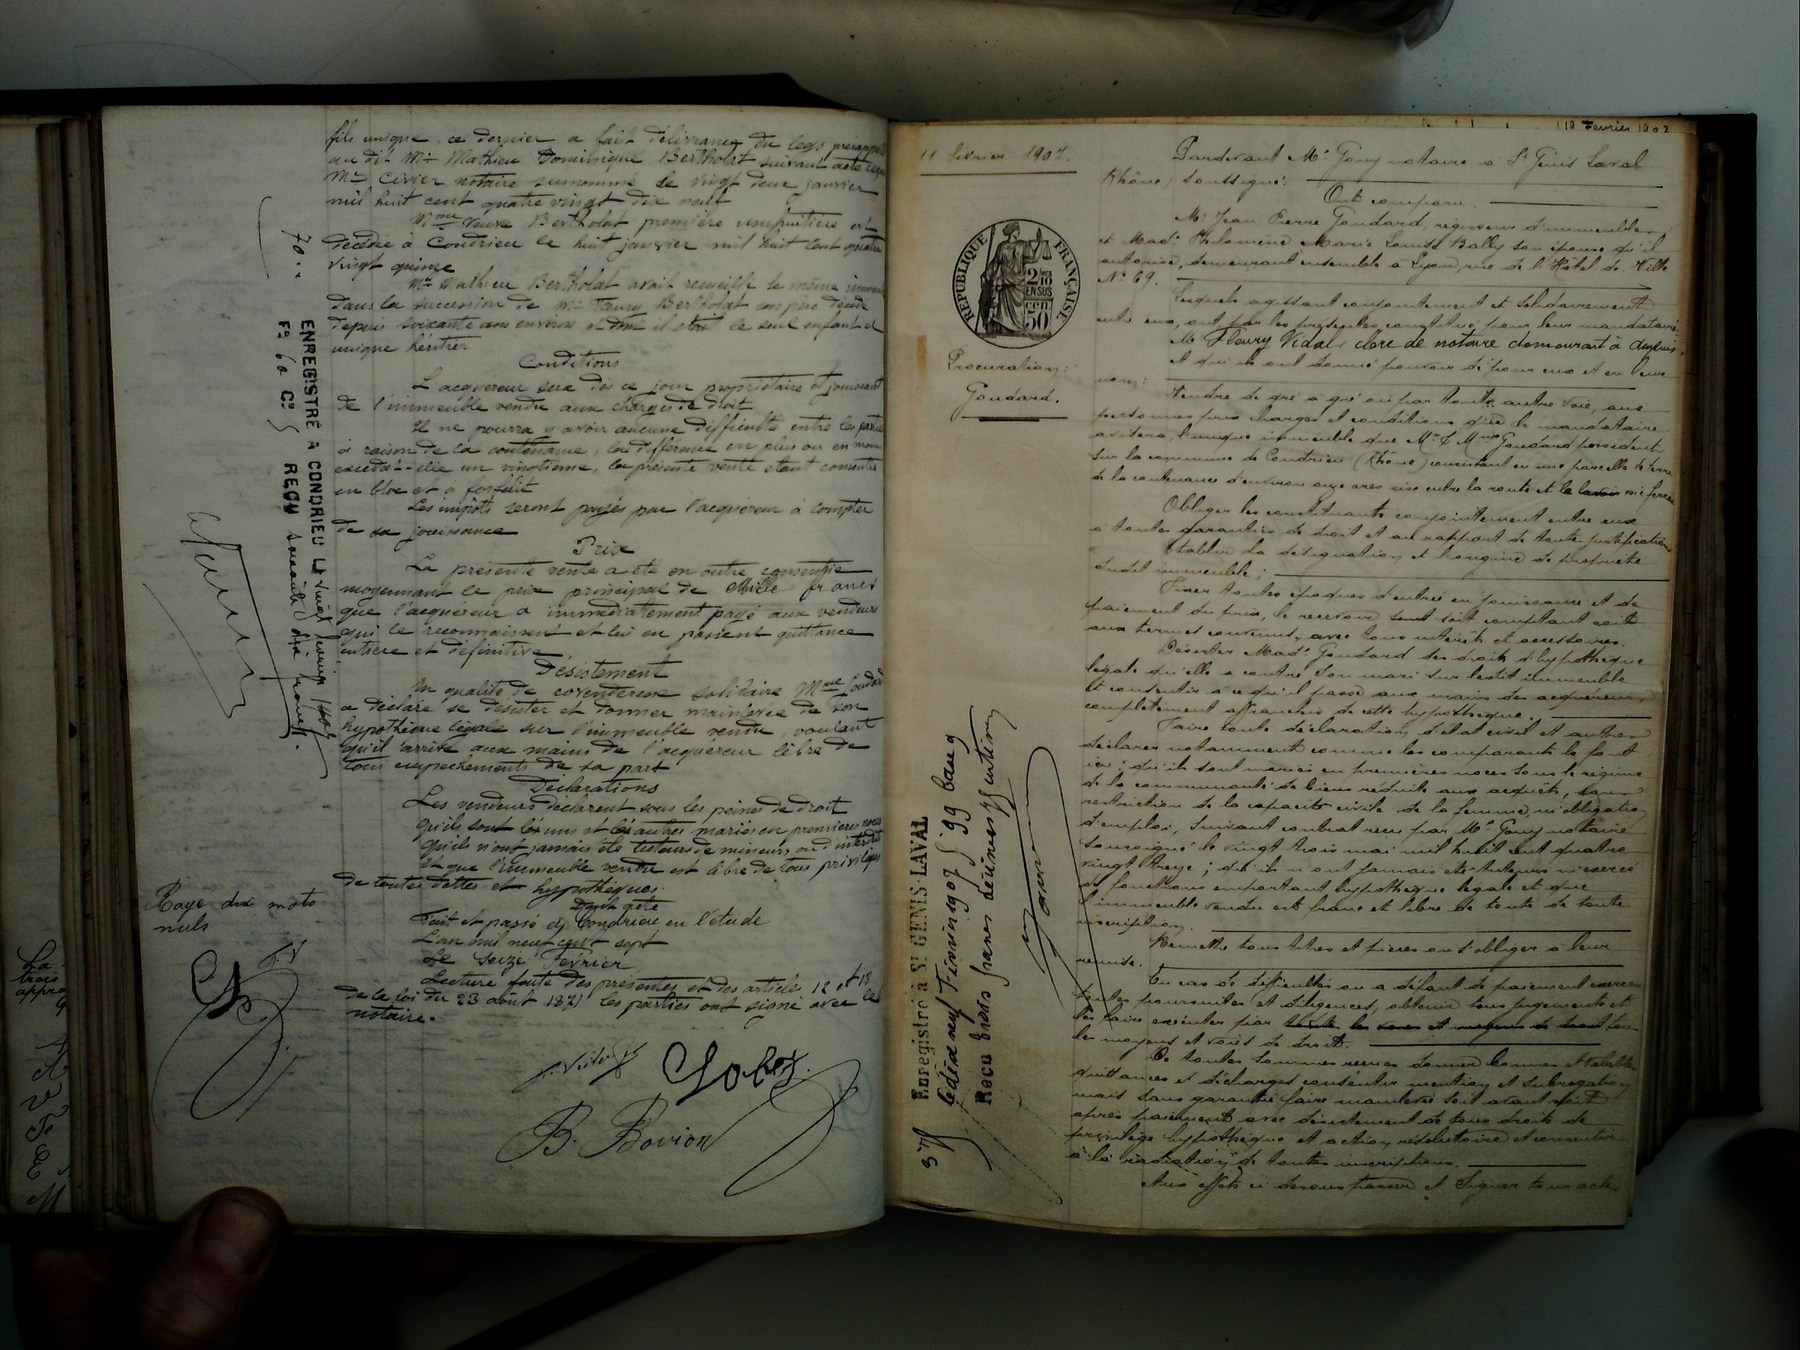 fils unique, ce dernier a fait délivrance du legs
au dit Mr Mathieu Dominique Bertholat suivant acte reçu
Me Civier notaire susnommé le vingt deux janvier
mil huit cent quatre vingt dix neuf
Mme Veuve Bertholat première usufruitière est
décédée à Condrieu le huit janvier mil huit cent quatre
vingt quinze
Mr Mathieu Bertholat avait recueilli le même immeuble
dans la succession de Mr Bertholat son père décédé
depuis soixante ans environ et dont il était le seul enfant et
unique héritier
Conditions
L'acquéreur sera dès ce jour propriétaire et jouissant
de l'immeuble vendu aux charges de droit
Il ne pourra y avoir aucune difficulté entre les parties
à raison de la contenance, la différence en plus ou en moins
excéda-t-elle un vingtième, la présente vente étant consentie
en bloc et à forfait
Les impôts seront payés par l'acquéreur à compter
de sa jouissance
Prix
La présente vente a été en outre consentie
moyennant le prix principal de Mille francs
que l'acquéreur a immédiatement payé aux vendeurs
qui le reconnaissent et lui en passent quittance
entière et définitive
Désistement
En qualité de covenderesse solidaire Mme Goudard
a déclaré se désister et donner mainlevée de son
hypothèque légale sur l'immeuble vendu, voulant
qu'il arrive aux mains de l'acquéreur libre de
tous empêchements de sa part
Déclarations
Les vendeurs déclarent sous les peines de droit
Qu'ils sont les uns et les autres mariés en premières noces
Qu'ils n'ont jamais été tuteurs de mineurs ou d'interdits
Et que l'immeuble vendu est libre de tous privilèges
de toutes dettes et hypothèques.
Dont acte
Fait et passé à Condrieu en l'étude
L'an mil neuf cent sept
Le seize Février
Lecture faite des présentes et des articles 12 et 13
de la loi du 23 août 1871 les parties ont signé avec le
notaire.
B. Bovion
Rayé dix mots
nuls
ENREGISTRÉ A CONDRIEU LE vingt février 1907
Fo 60 Co 5 REÇU soixante dix francs
70..
11 février 1907.
RÉPUBLIQUE FRANÇAISE
Procuration:
Goudard.
Enregistré à St GENIS-LAVAL
le dix neuf février 1907 fo 99 case 9
Reçu trois francs décimes 75 centimes
3 75
19 Février 1907
Pardevant Me Gouy notaire à St Genis Laval
(Rhône) soussigné.
Ont comparu.
Mr Jean Pierre Goudard, régisseur d'immeubles,
et Made Philomène Marie Louise Bally son épouse qu'il
autorise, demeurant ensemble à Lyon, rue de l'Hôtel de Ville
No 69.
Lesquels agissant conjointement et solidairement
entr'eux, ont par les présentes constitué pour leur mandataire:
Mr Fleury Vidal, clerc de notaire demeurant à Ampuis.
et qui ils ont donné pouvoir de pour eux et en leur
nom:
Vendre de gré à gré ou par toute autre voie, aux
personnes prix charges et conditions que le mandataire
avisera, l'unique immeuble que Mr & Mme Goudard possèdent
sur la commune de Condrieu (Rhône) consistant en une parcelle de terre
de la contenance d'environ onze ares sise entre la route et la voie ferrée
Obliger les constituants conjointement entre eux
à toutes garanties de droit et au rapport de toute justification
Etablir la désignation et l'origine de propriété
dudit immeuble;
Fixer toutes époques d'entrée en jouissance et de
paiement du prix, le recevoir soit comptant soit
aux termes convenus, avec tous intérêts et accessoires.
Désister Made Goudard des droits d'hypothèque
légale qu'elle a contre son mari sur ledit immeuble
et consentir à ce qu'il passe aux mains des acquéreurs
complètement affranchi de cette hypothèque.
Faire toute déclaration d'état civil et autres
déclarer notamment comme les comparants le font
ici; qu'ils sont mariés en premières noces sous le régime
de la communauté de biens réduite aux acquêts, sans
restriction de la capacité civile de la femme, ni obligation
d'emploi, suivant contrat reçu par Me Gouy notaire
soussigné le vingt trois mai mil huit cent quatre
vingt treize; qu'ils n'ont jamais été tuteurs ni exercé
de fonctions emportant hypothèque légale et que
l'immeuble vendu est franc et libre de toute
inscription.
Remettre tous titres et pièces ou s'obliger à leur
remise.
En cas de difficultés ou à défaut de paiement exercer
toutes poursuites et diligences, obtenir tous jugements et
les faire exécuter par tous
les moyens et voies de droit.
De toutes sommes reçues donner bonnes et valables
quittances et décharges consentir mention et subrogation
mais sans garantie faire mainlevée soit avant soit
après paiement avec désistement de tous droits de
privilège hypothèque et action résolutoire et consentir
à la radiation de toutes inscriptions.
Aux effets ci dessus passer et signer tous actes